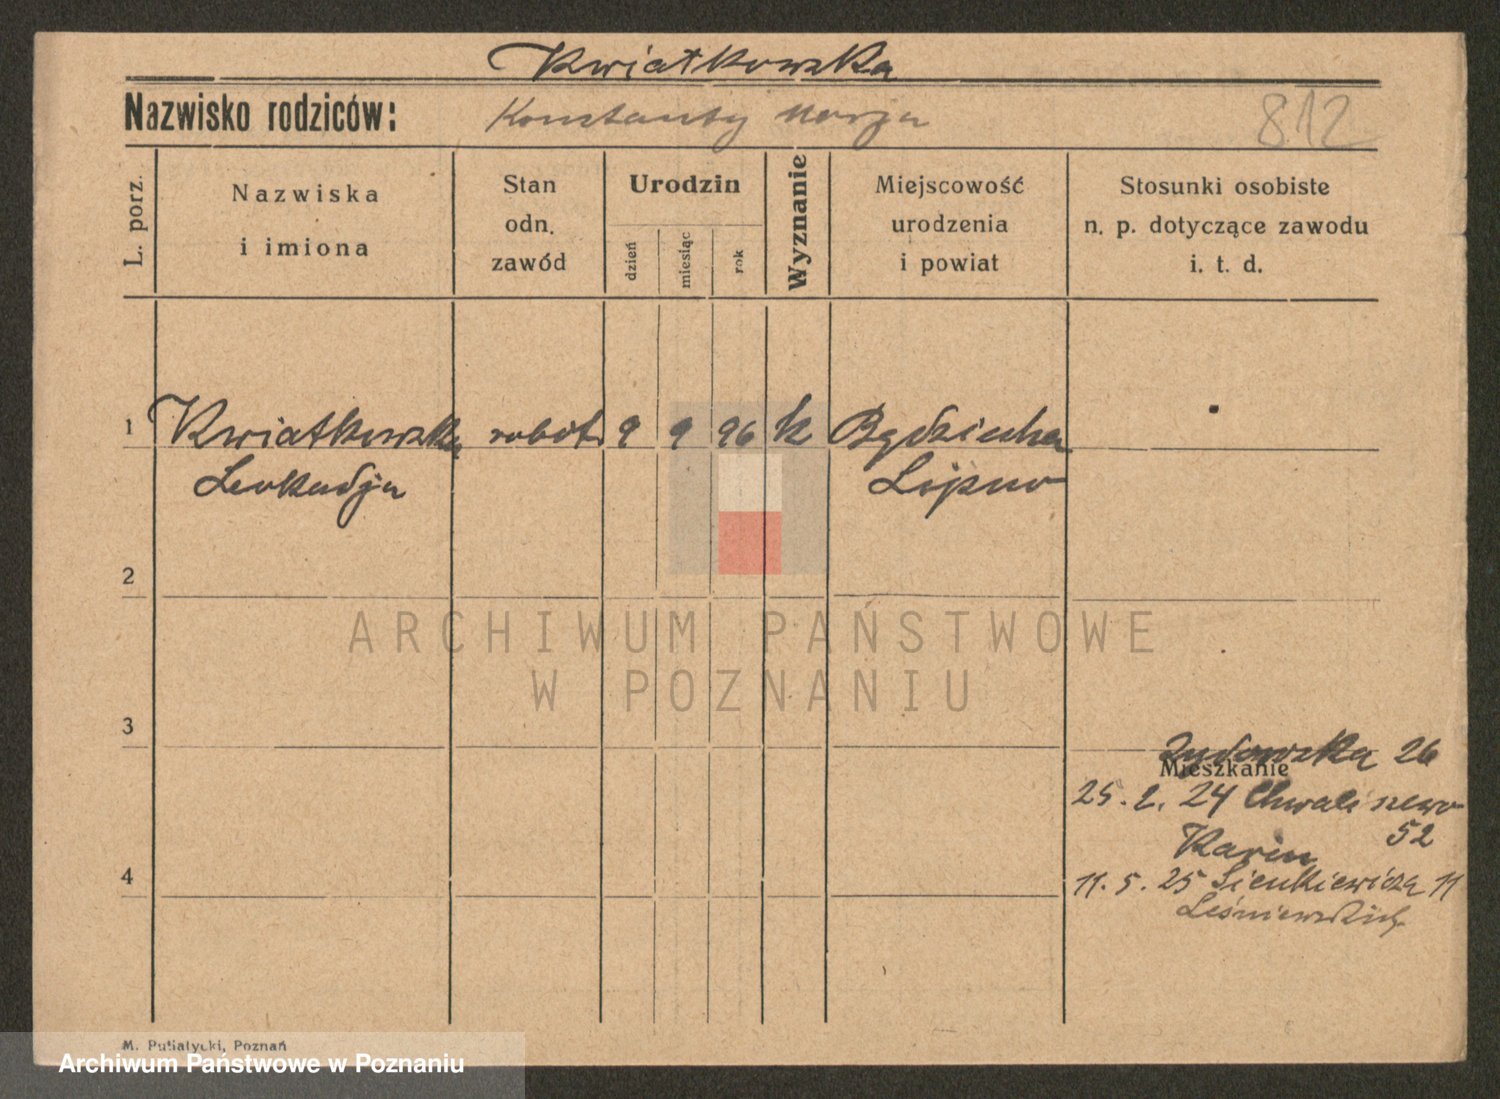 Kwiatkowska
Nazwisko rodziców: Konstanty Marja 812
L. porz.
Nazwiska
i imiona
Stan
odn.
zawód
Urodzin
dzień
miesiąc
rok
Wyznanie
Miejscowość
urodzenia
i powiat
Stosunki osobiste
n. p. dotyczące zawodu
i. t. d.
1 Kwiatkowska robot. 9 9 96 k
Leokadja Lipno
2
3
Żydowska 26
Mieszkanie
25. 2. 24 Chwaliszewo
52
4
11. 5. 25 Sienkiewicza 11
ARCHIWUM PAŃSTWOWE
W POZNANIU
M. Putiatycki, Poznań
Archiwum Państwowe w Poznaniu